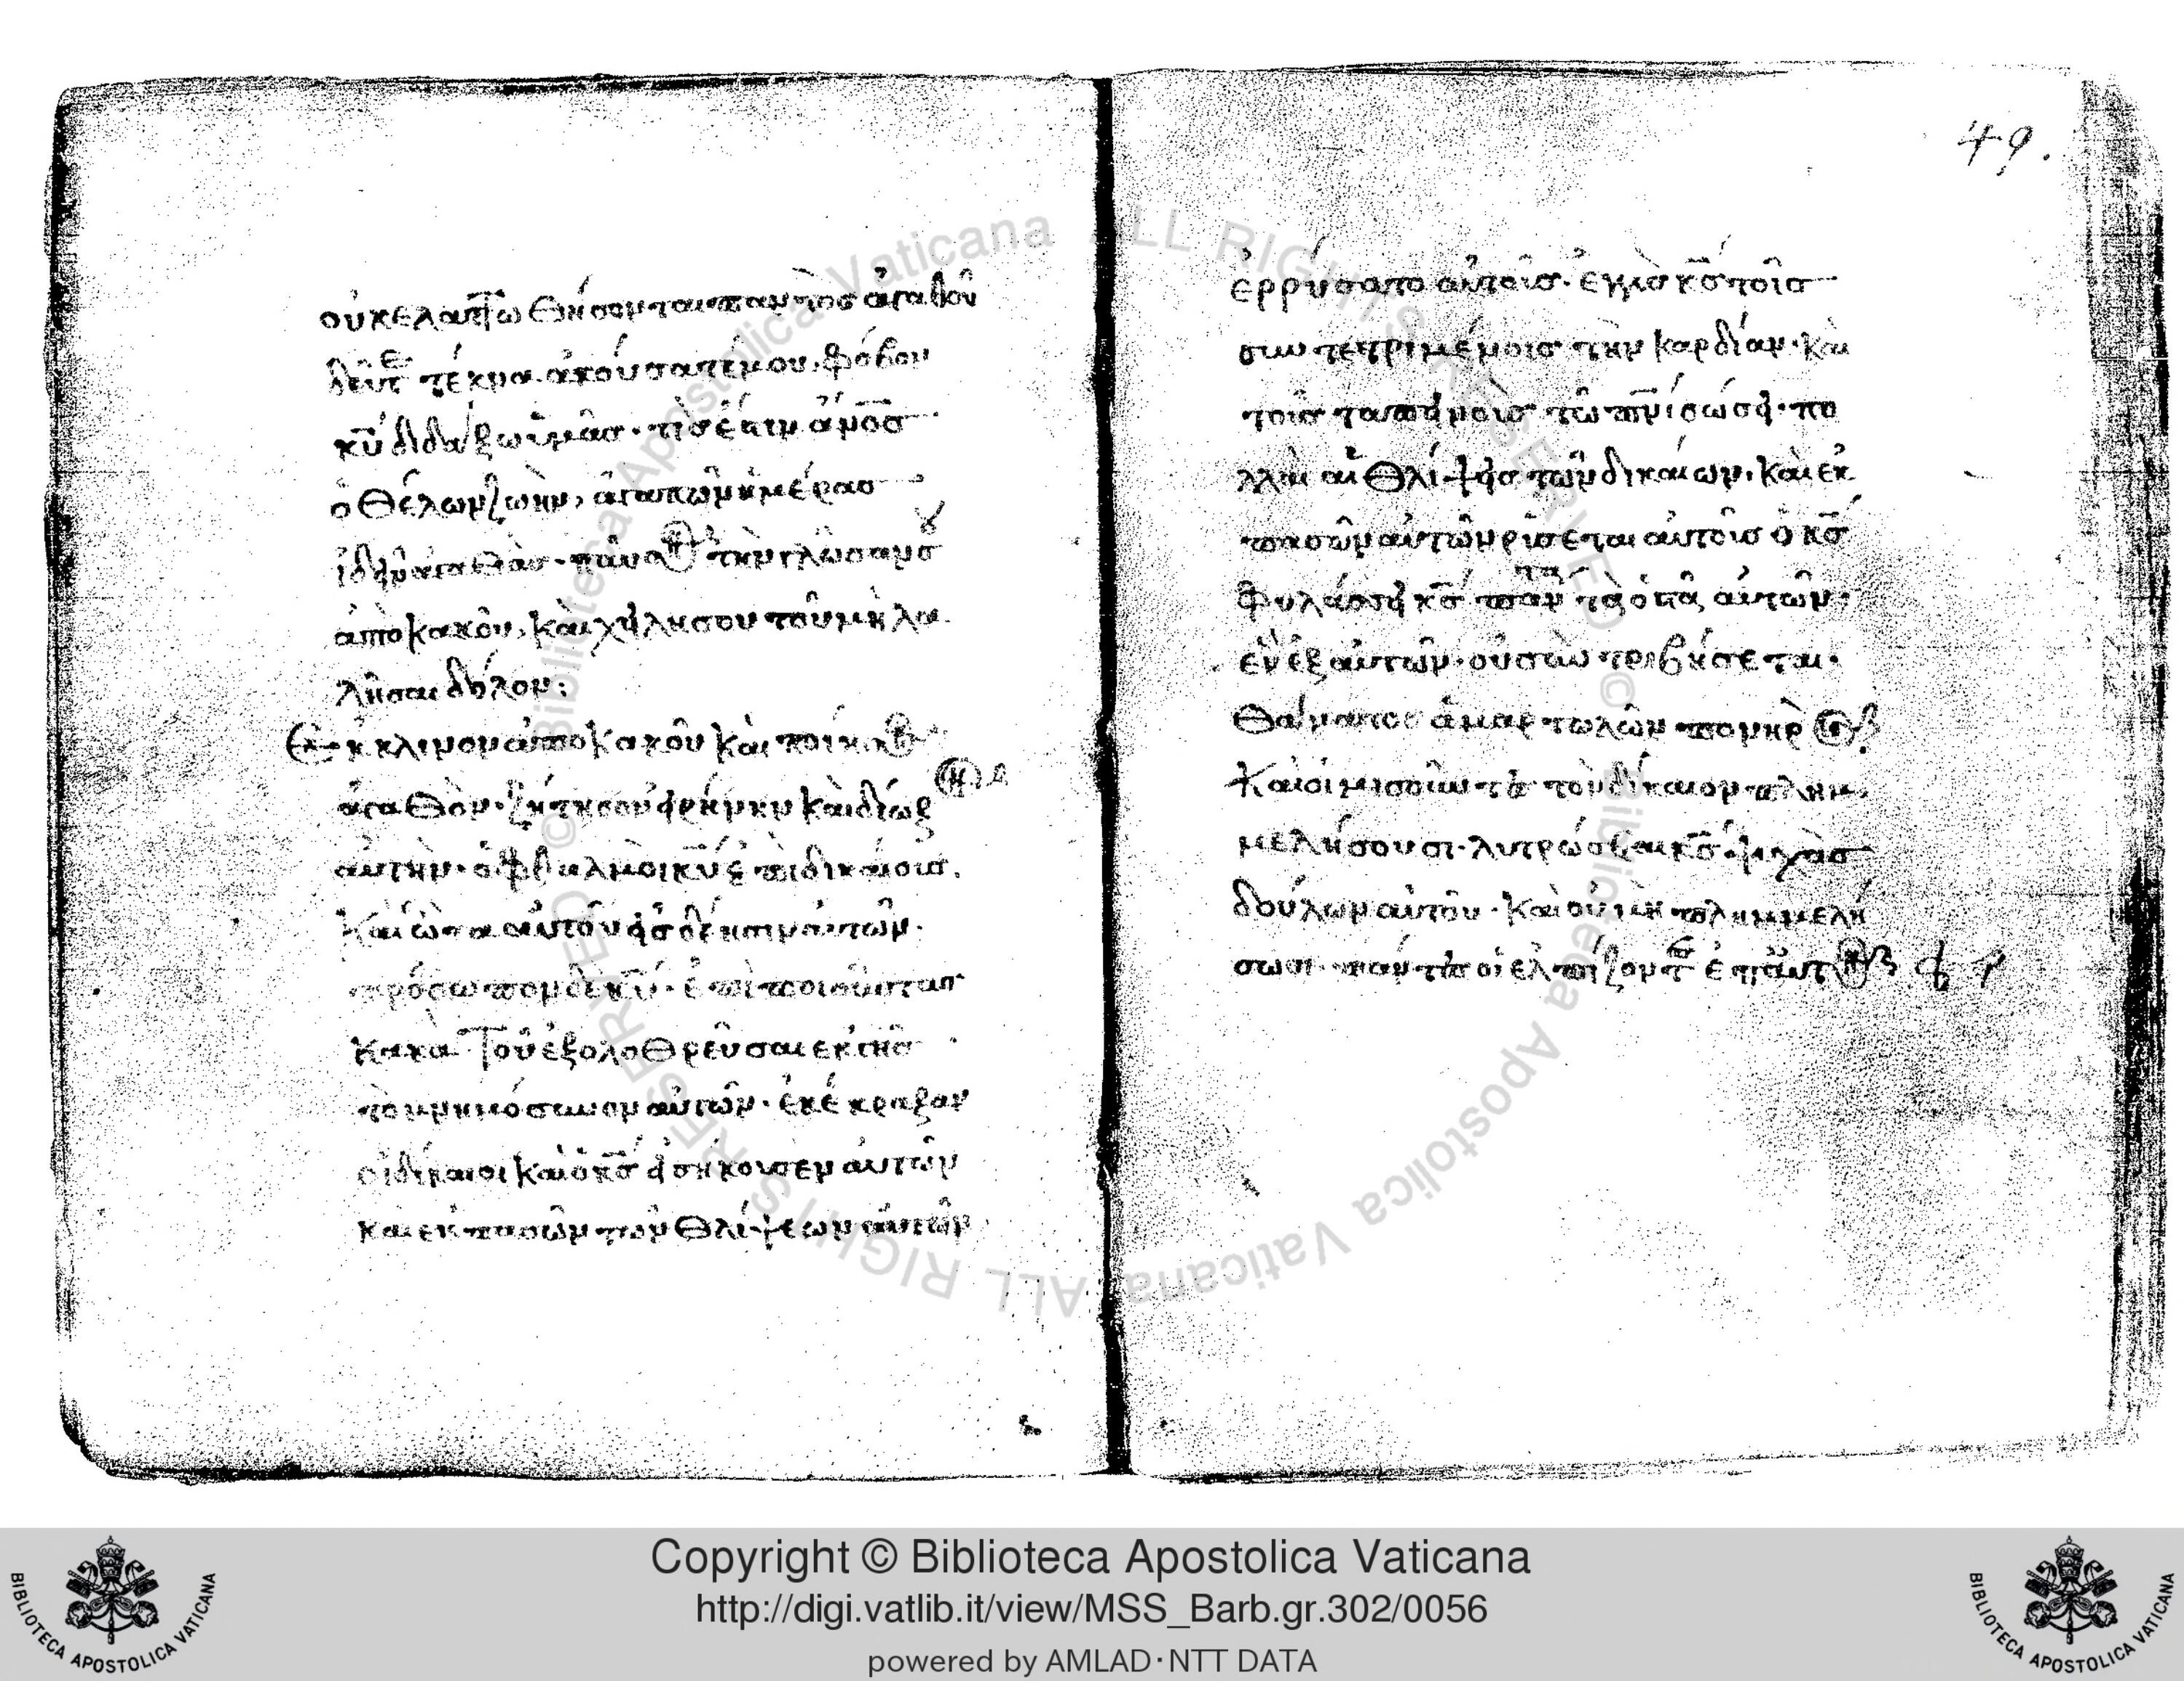 οὐκ ἐλαττωθήσονται παντὸς ἀγαθοῦ
δεῦτε τέκνα ἀκούσατέ μου, φόβον
κῡ διδάξω ὑμᾶς· τίς ἐστιν ἄνος
ὁ θέλων ζωὴν, ἀγαπῶν ἡμέρας
ἰδεῖν ἀγαθάς· παῦσον τὴν γλῶσαν σου
ἀπὸ κακοῦ, καὶ χείλη σου τοῦ μὴ λα
λῆσαι δόλον:
Ἔκκλινον ἀπὸ κακοῦ καὶ ποίησον
ἀγαθόν· ζήτησον εἰρήνην καὶ δίωξον
αὐτήν· ὀφθαλμοὶ κῡ ἐπὶ δικαίους.
καὶ ὦτα αὐτοῦ εἰς δέησιν αὐτῶν·
πρόσωπον δὲ κῡ· ἐπὶ ποιοῦντας
κακὰ Τοῦ ἐξολοθρεῦσαι ἐκ γῆς
τὸ μνημόσυνον αὐτῶν· ἐκέκραξαν
οἱ δίκαιοι καὶ ὁ κς̄ εἰσήκουσεν αὐτῶν
καὶ ἐκ πασῶν τῶν θλίψεων αὐτῶν
49.
ἐρρύσατο αὐτοῖς· ἐγγὺς κς̄ τοῖς
συντετριμένοις τὴν καρδίαν· καὶ
τοὺς ταπεινοὺς τῶ πνῑ σώσει· πο
λλαὶ αἱ θλίψεις τῶν δικαίων· καὶ ἐκ
πασῶν αὐτῶν ρύσεται αὐτοὺς ὁ κς̄
Φυλάσσει κς̄ πάντα τὰ ὀστᾶ αὐτῶν·
ἓν ἐξ αὐτῶν· οὐ συντριβήσεται·
Θάνατος ἁμαρτωλῶν πονηρὸς
Καὶ οἱ μισοῦντες τὸν δίκαιον πλημ
μελήσουσι· λυτρώσεται κς̄ ψυχὰς
δούλων αὐτοῦ· Καὶ οὐ μὴ πλημμελή
σωσι· πάντες οἱ ἐλπίζοντες ἐπ' αὐτόν
Copyright © Biblioteca Apostolica Vaticana
http://digi.vatlib.it/view/MSS_Barb.gr.302/0056
powered by AMLAD·NTT DATA
BIBLIOTECA APOSTOLICA VATICANA
BIBLIOTECA APOSTOLICA VATICANA